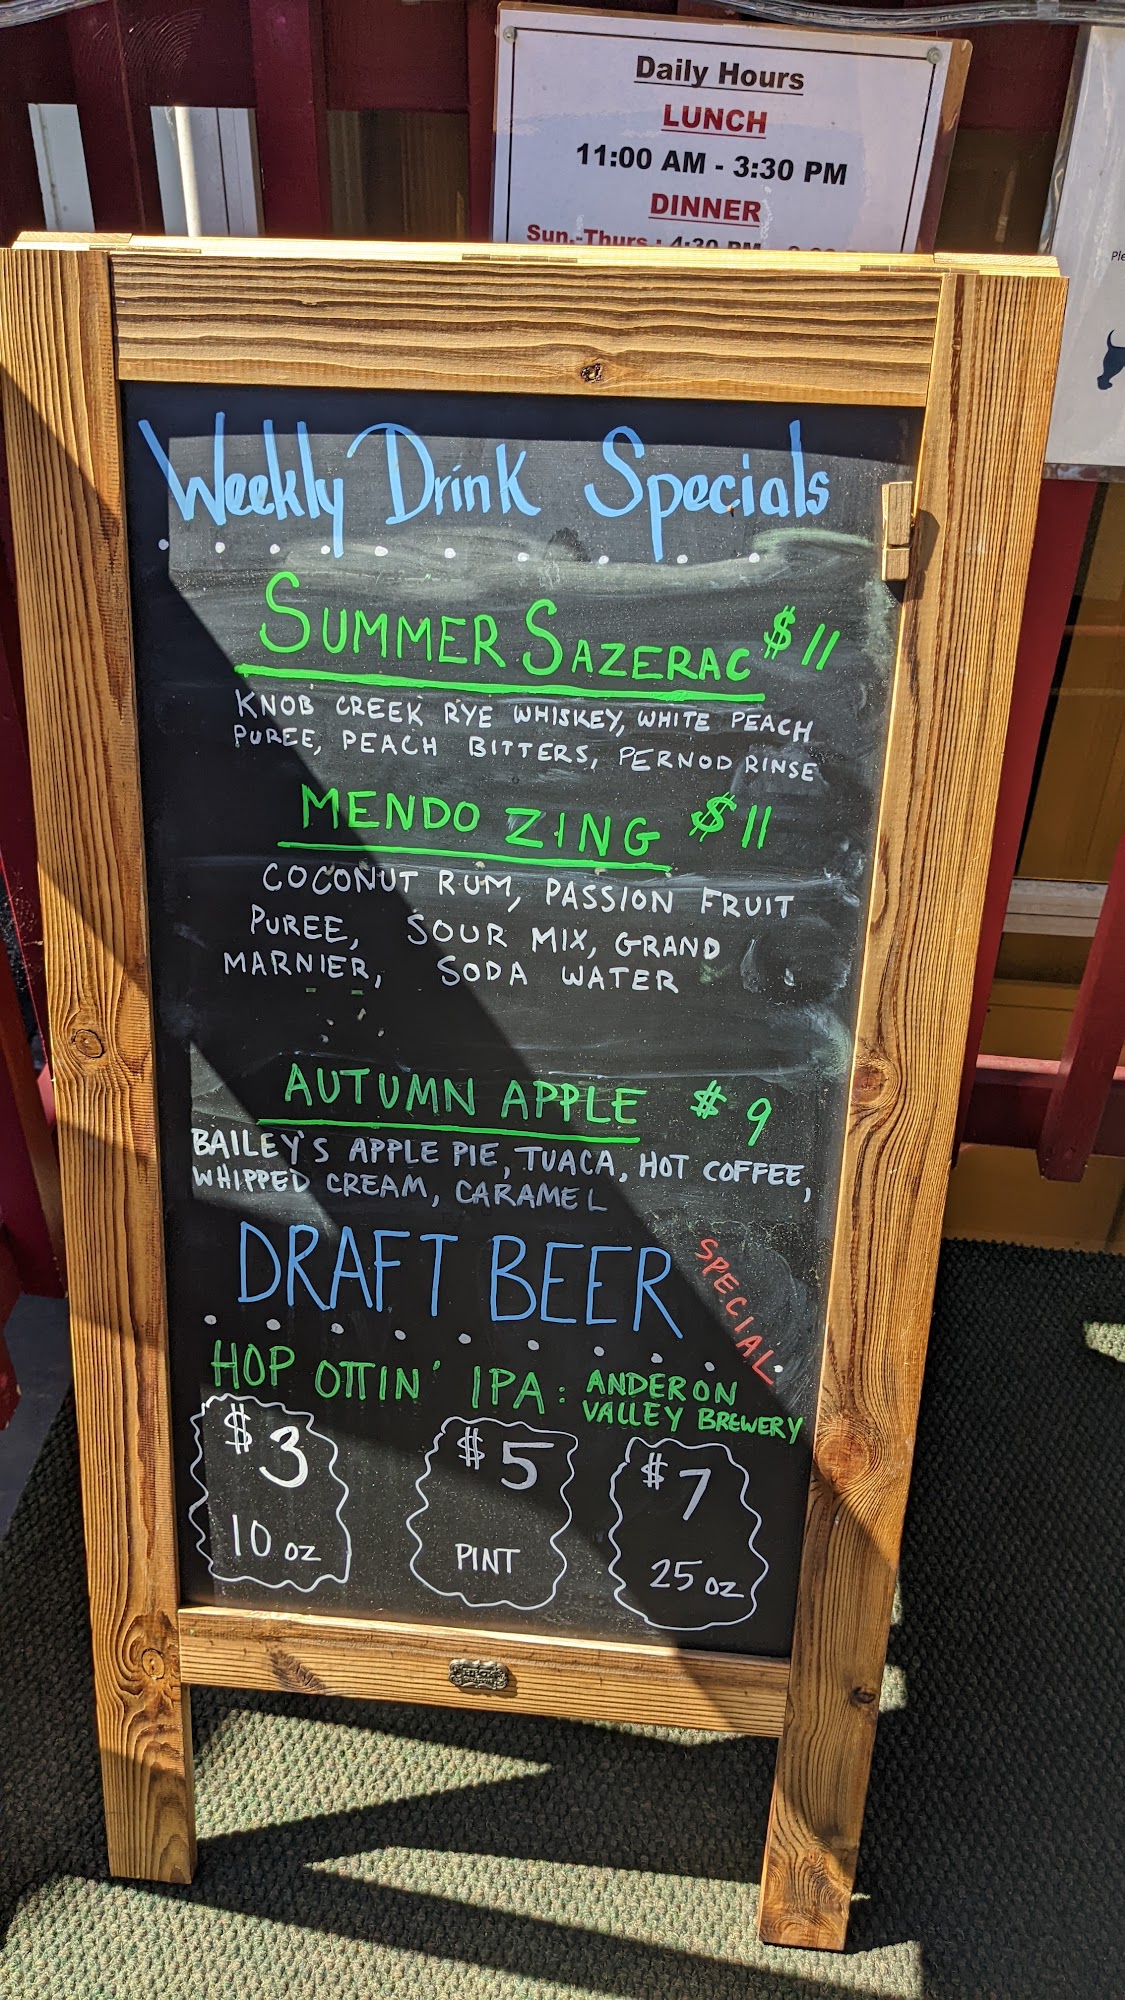 Daily Hours
LUNCH
11:00 AM - 3:30 PM
DINNER
Sun.-Thurs.: 4:30 PM
Ple
Weekly Drink Specials
SUMMER SAZERAC $11
KNOB CREEK RYE WHISKEY, WHITE PEACH
PUREE, PEACH BITTERS, PERNOD RINSE
MENDO ZING $11
COCONUT RUM, PASSION FRUIT
PUREE, SOUR MIX, GRAND
MARNIER, SODA WATER
AUTUMN APPLE $9
BAILEY'S APPLE PIE, TUACA, HOT COFFEE,
WHIPPED CREAM, CARAMEL
DRAFT BEER SPECIAL
HOP OTTIN' IPA: ANDERON
VALLEY BREWERY
$3 $5 $7
10 oz PINT 25 oz